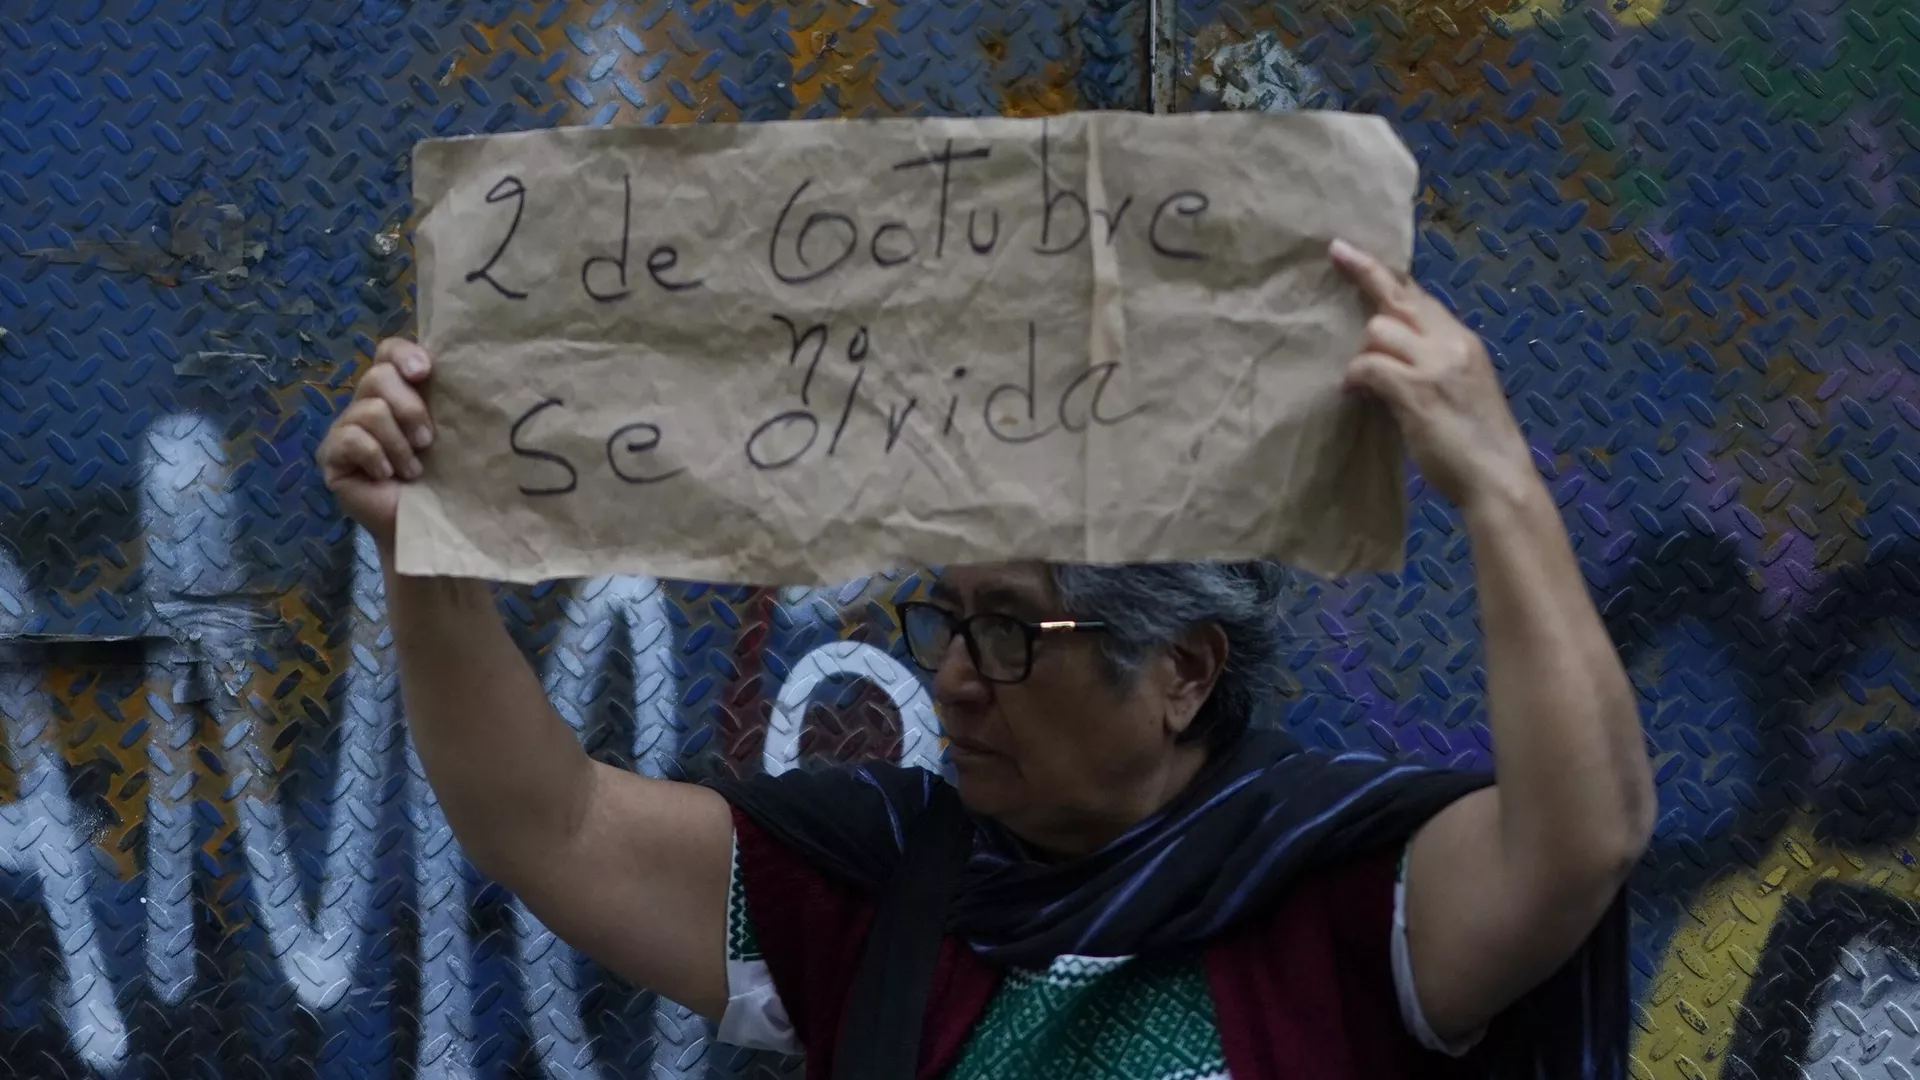 2 de Octubre
no
Se olvida